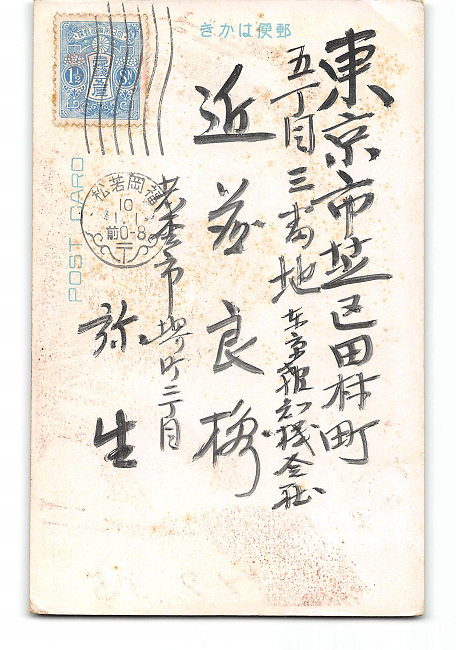 郵便はかき
東京市芝区田村町
五丁目三番地
東京報知機会社
近藤良
市
町二丁目
弥生
POST CARD
1½ Sn
福岡若松
10
1.1
前0-8